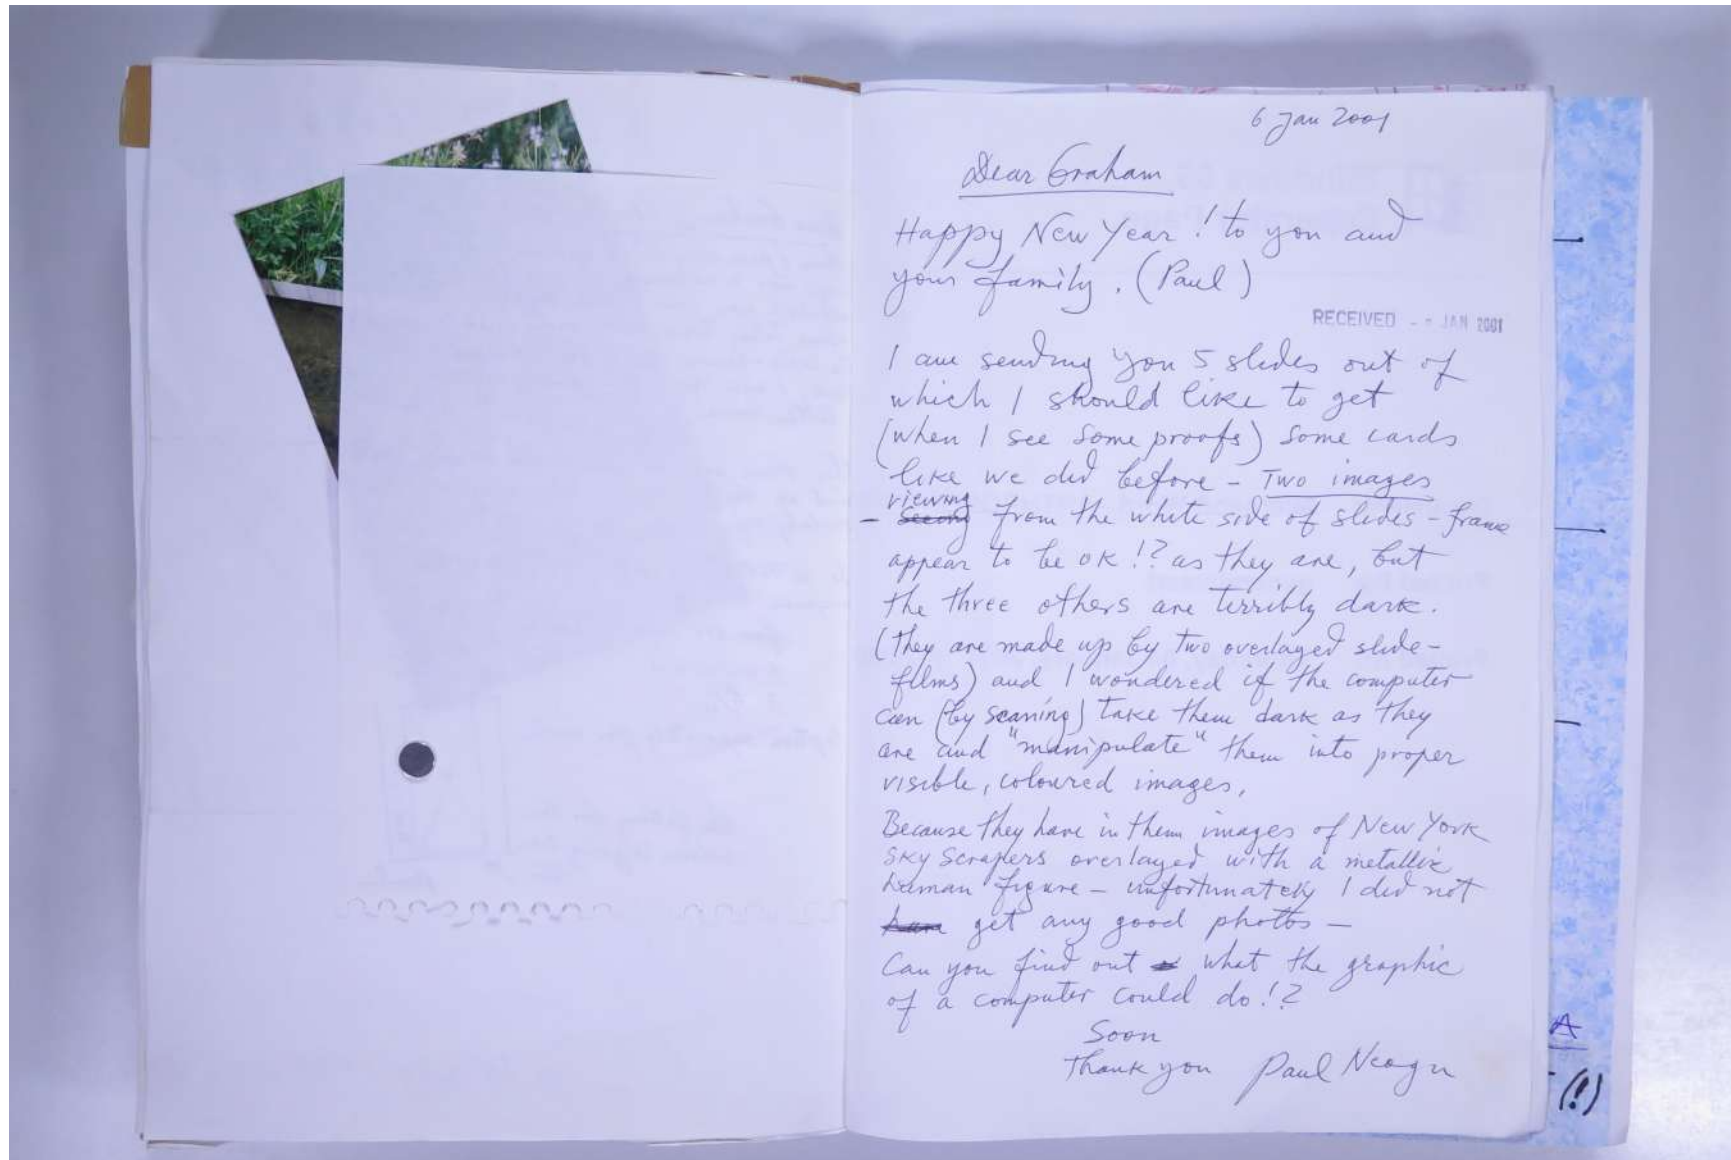 6 Jan 2001
Dear Graham
Happy New Year! to you and
your family. (Paul)
RECEIVED JAN 2001
I am sending you 5 slides out of
which I should like to get
(when I see some proofs) some cards
like we did before - Two images
viewing
- from the white side of slides - frame
appear to be OK!? as they are, but
the three others are terribly dark.
(they are made up by two overlayed slide-
films) and I wondered if the computer
can (by scaning) take them dark as they
are and "manipulate" them into proper
visible, coloured images,
Because they have in them images of New York
Sky Scrapers overlayed with a metallic
human figure - unfortunately I did not
get any good photos -
Can you find out what the graphic
of a computer could do!?
Soon
Thank you Paul Neagu
A
(!)